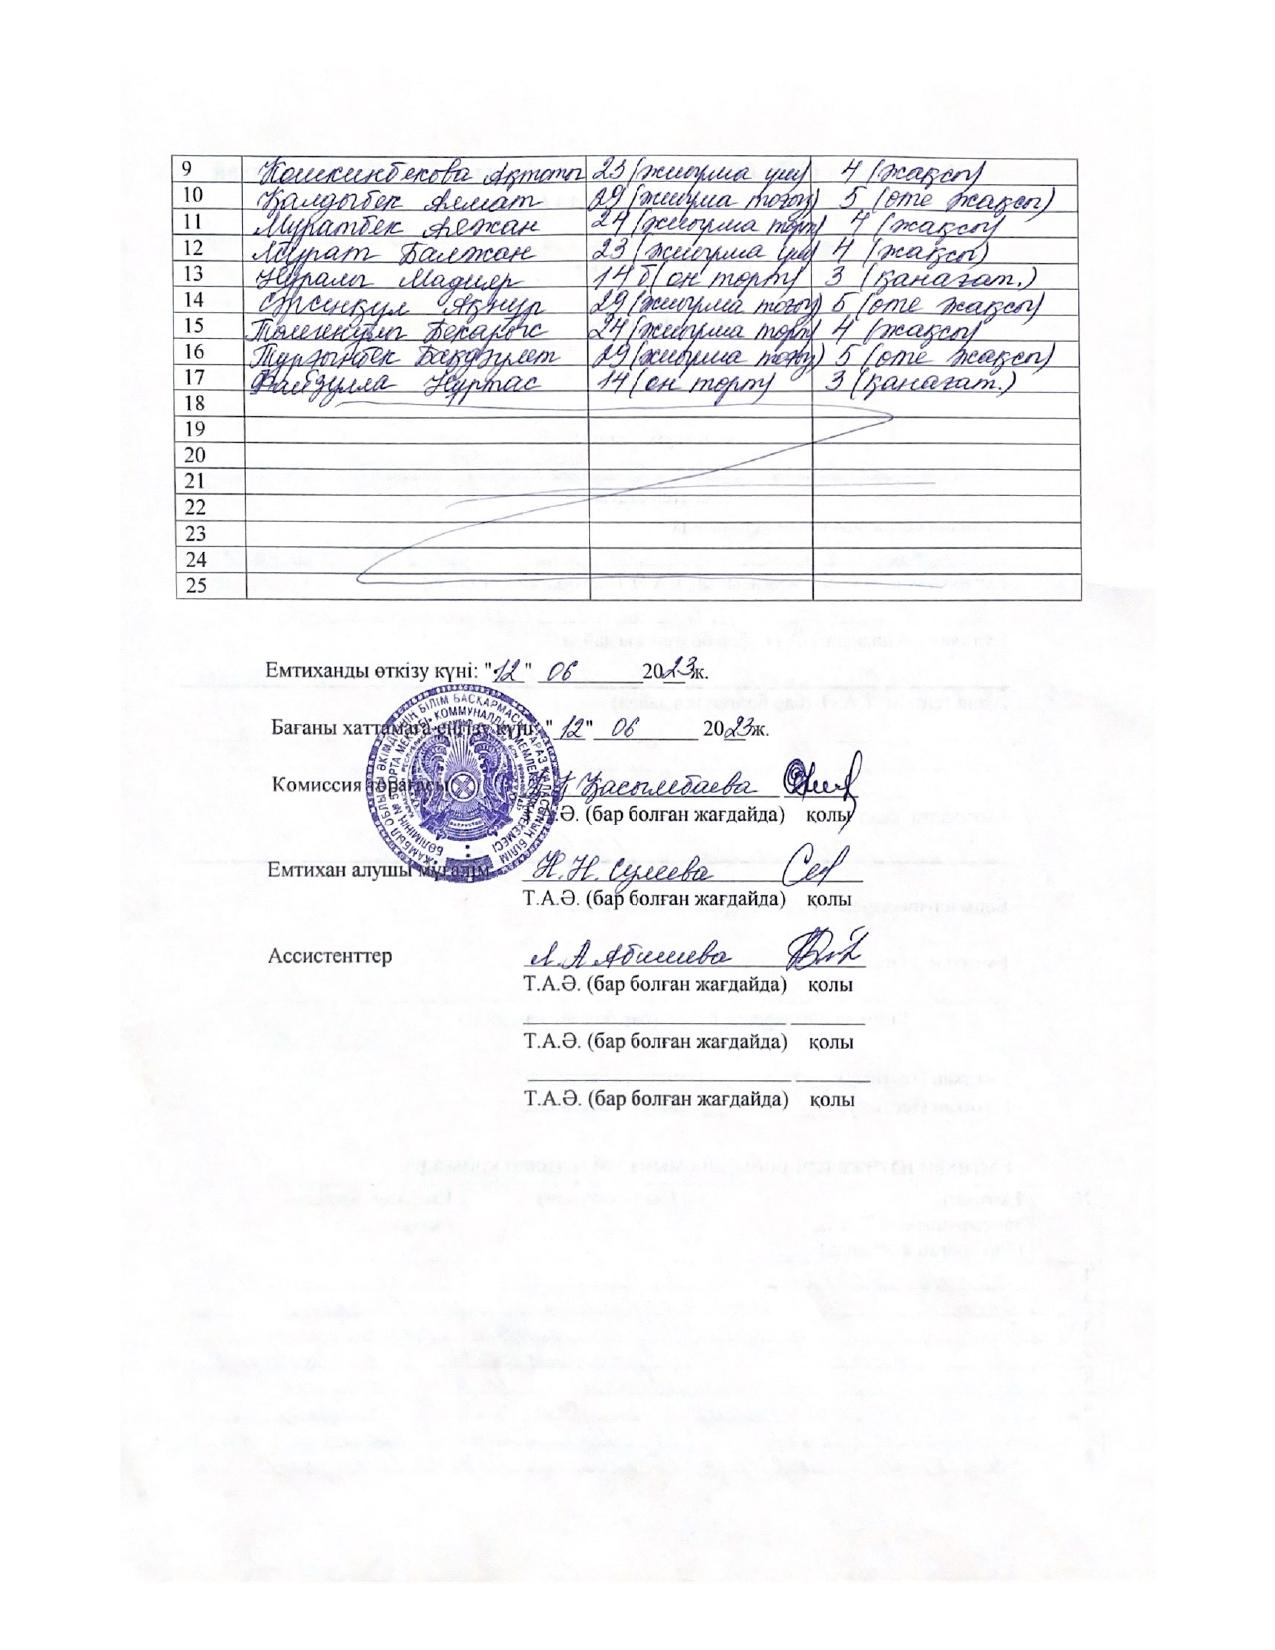 9 Кошкинбекова Ақтоты 23 (жиырма үш) 4 (жақсы)
10 Қалдыбек Алмат 29 (жиырма тоғыз) 5 (өте жақсы)
11 Муратбек Абжан 24 (жиырма төрт) 4 (жақсы)
12 Мурат Балжан 23 (жиырма үш) 4 (жақсы)
13 Нұралы Мадияр 14 б (он төрт) 3 (қанағат.)
14 Ақнұр 29 (жиырма тоғыз) 5 (өте жақсы)
15 Бекарыс 24 (жиырма төрт) 4 (жақсы)
16 Тұрғынбек Бақдәулет 29 (жиырма тоғыз) 5 (өте жақсы)
17 Файзулла Нұртас 14 (он төрт) 3 (қанағат.)
18
19
20
21
22
23
24
25
Емтиханды өткізу күні: "12" 06 2023ж.
Бағаны хаттамаға енгізу күні: "12" 06 2023ж.
Комиссия төрағасы Қасымбаева
Т.А.Ә. (бар болған жағдайда) қолы
Емтихан алушы мұғалім Н.Н. Сулеева
Т.А.Ә. (бар болған жағдайда) қолы
Ассистенттер Л.А Абишева
Т.А.Ә. (бар болған жағдайда) қолы
Т.А.Ә. (бар болған жағдайда) қолы
Т.А.Ә. (бар болған жағдайда) қолы